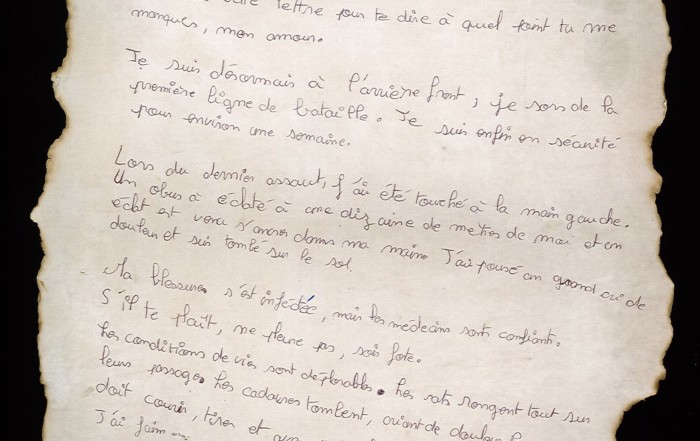 lettre pour te dire à quel point tu me
manques, mon amour.
Je suis désormais à l'arrière front, je sors de la
première ligne de bataille. Je suis enfin en sécurité
pour environ une semaine.
Lors du dernier assaut, j'ai été touché à la main gauche.
Un obus à éclaté à une dizaine de mètres de moi et un
éclat est venu s'ancrer dans ma main. J'ai poussé un grand cri de
douleur et suis tombé sur le sol.
Ma blessure s'est infectée, mais les médecins sont confiants.
S'il te plaît, ne pleure pas, sois forte.
Les conditions de vie sont déplorables. Les rats rongent tout sur
leurs passages. Les cadavres tombent, criant de
doit courir, tirer et
J'ai faim